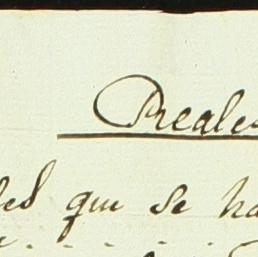 Reales
que se ha